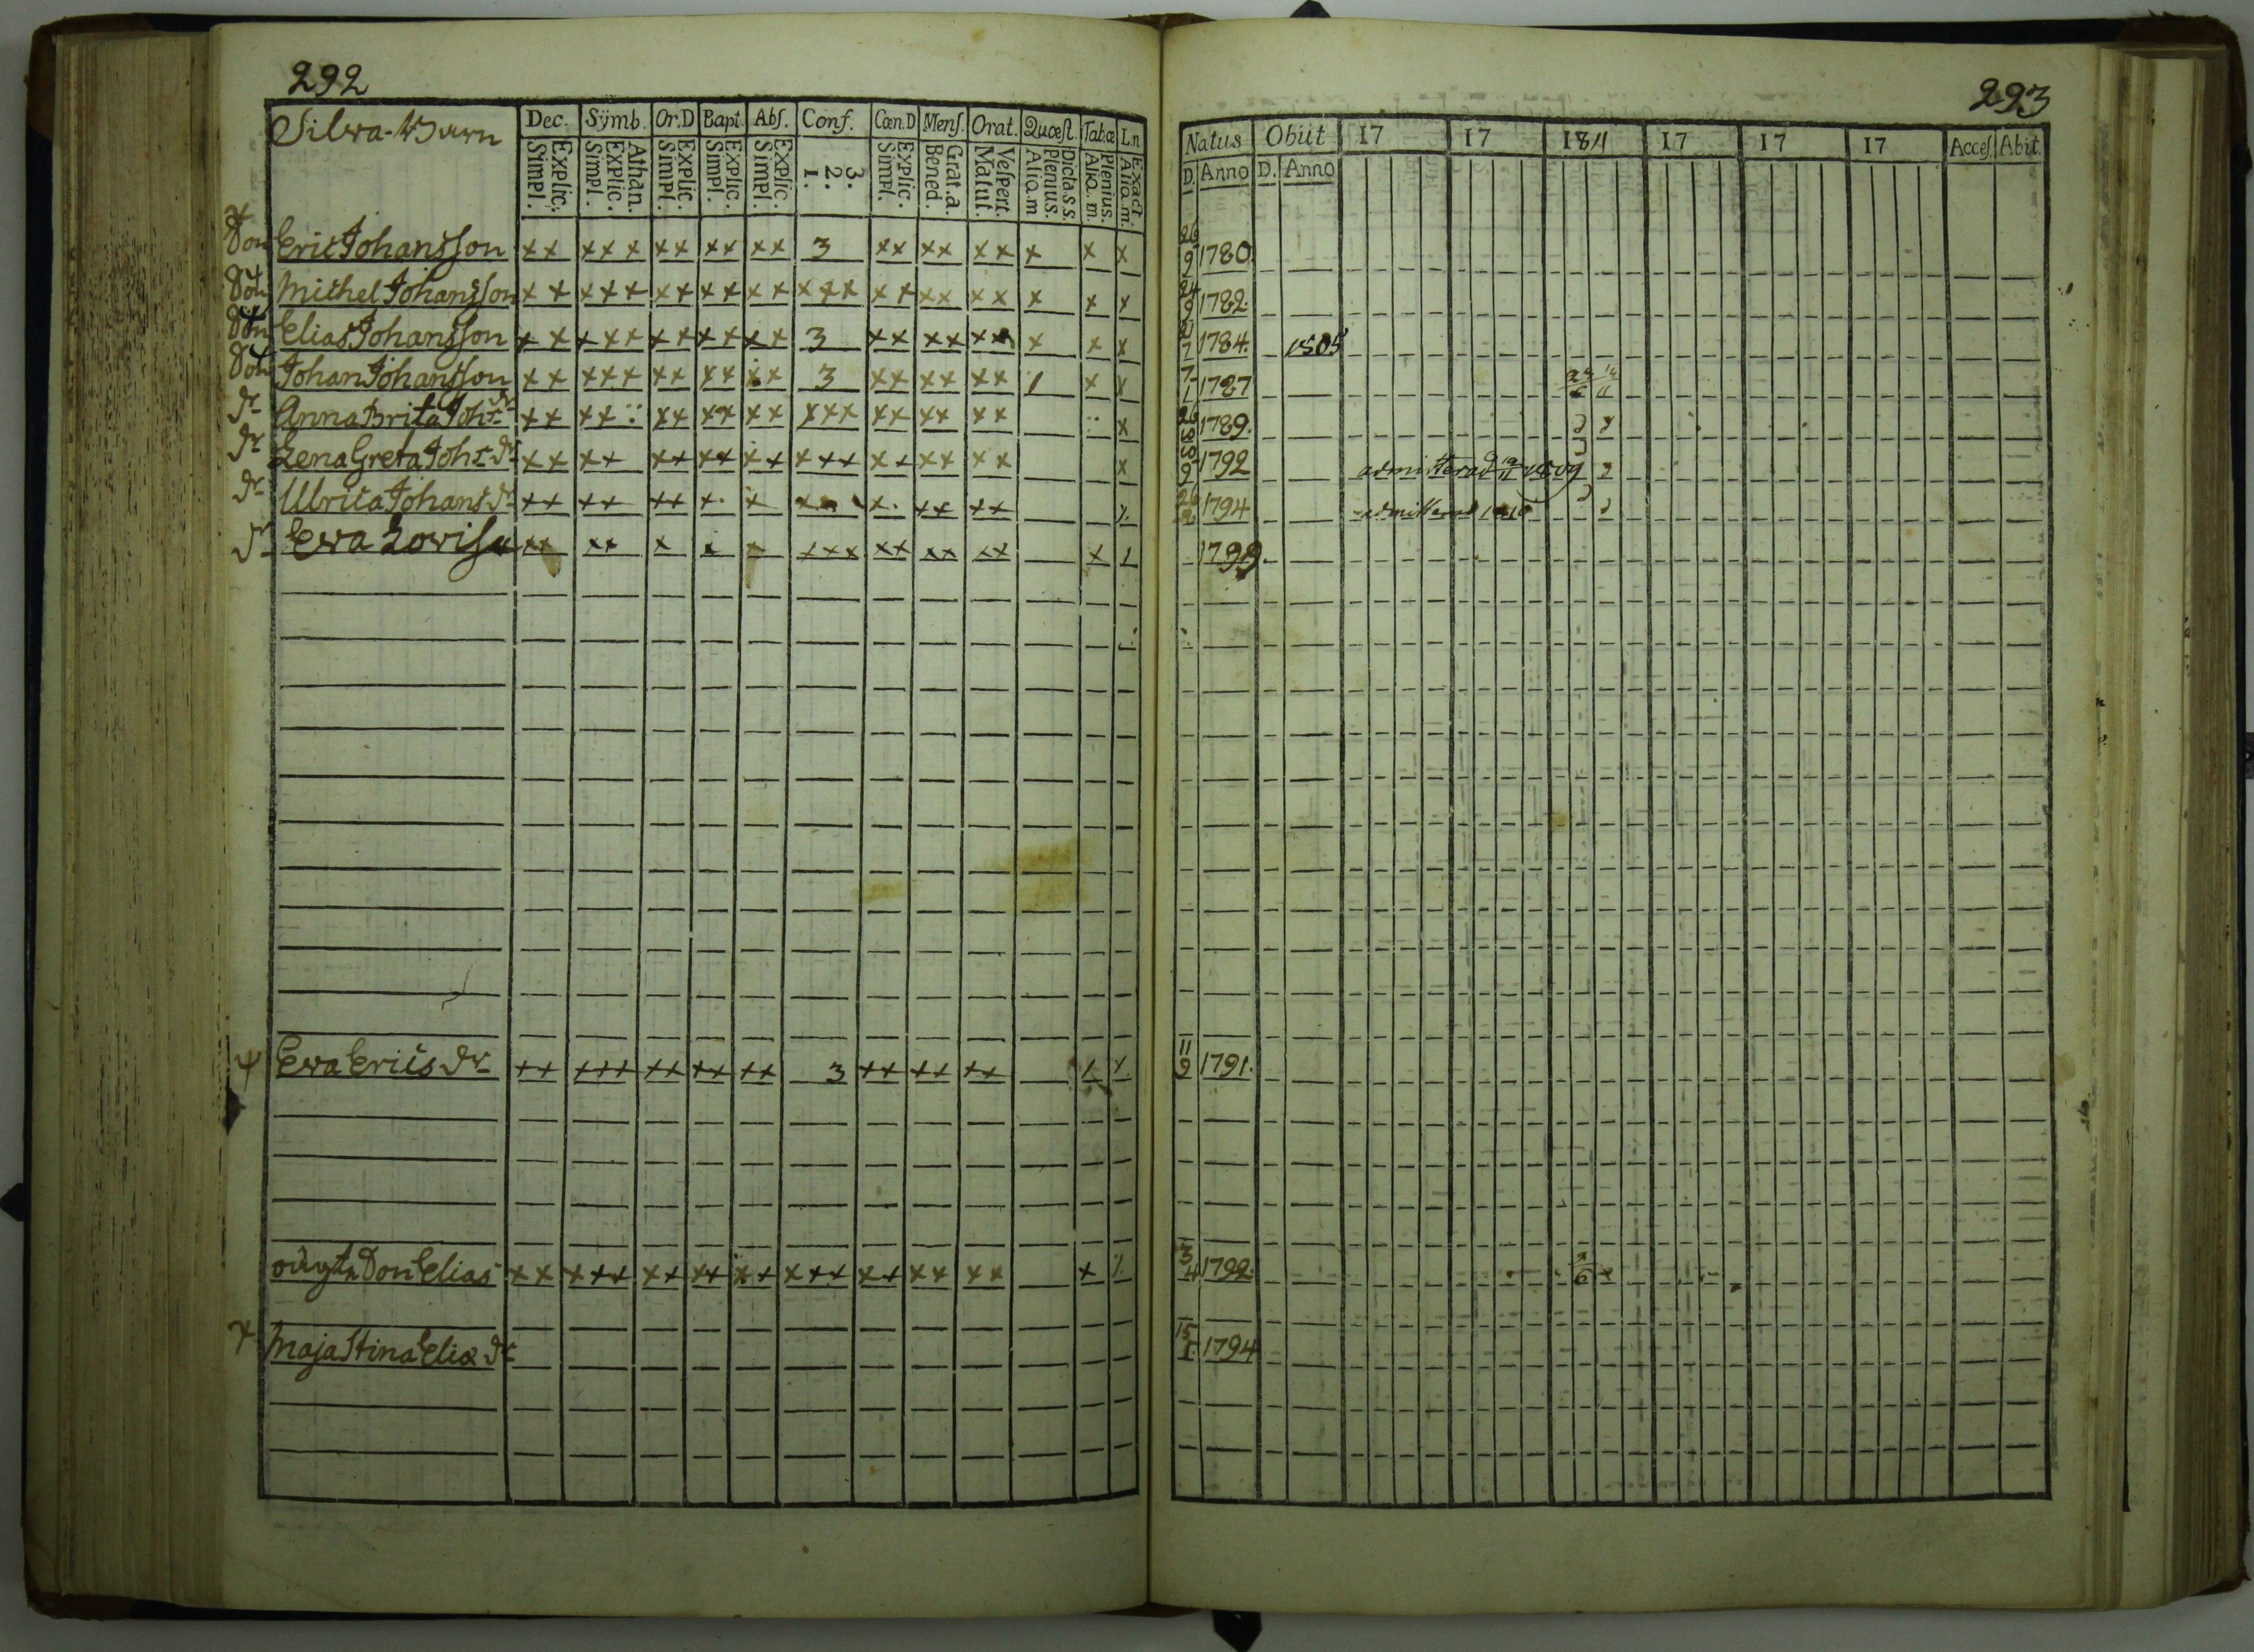 292
Silwa-Barn
Dec. Sÿmb. Or.D Bapt. Abſ. Conf. Cœn.D Menſ. Orat. Quæſt. Tab.æ L.n
Simpl. Explic. Simpl. Explic. Athan. Simpl. Explic. Simpl. Explic. Simpl. Explic. 1. 2. 3. Simpl. Explic. Bened. Grat.a. Matut. Veſpert. Aliq.m Plenius. Dicta.s.s. Aliq.m. Plenius. Aliq.m. Exact
Son Eric Johansſon xx xxx xx xx xx 3 xx xx xx x x x
Son Michel Johansſon xx xxx xx xx xx xxx xx xx xx x x x
Son Elias Johansſon xx xxx xx xx xx 3 xx xx xx x x x
Son Johan Johansſon xx xxx xx xx xx 3 xx xx xx / x x
dr Anna Brita Johs dr xx xx xx xx xx xxx xx xx xx x
dr Lena Greta Johs dr xx xx xx xx xx xxx xx xx xx x
dr Ulrica Johans dr xx xx xx x x x xx xx
dr Ewa Lovisa xx xx x x x xxx xx xx xx x
Ewa Erics dr xx xxx xx xx xx 3 xx xx xx
Don Elias xx xxx xx xx xx xxx xx xx xx x
Maja Stina Eliæ dr
293
Natus Obiit 17 17 1811 17 17 17 Acceſ Abit.
D. Anno D. Anno
26/9 1780.
24/9 1782.
1784. 1805
7/1 1787
1789.
1792 admitterad 1809
1794 admitterad 1810
1799.
11/9 1791.
3/4 1792.
15/1 1794